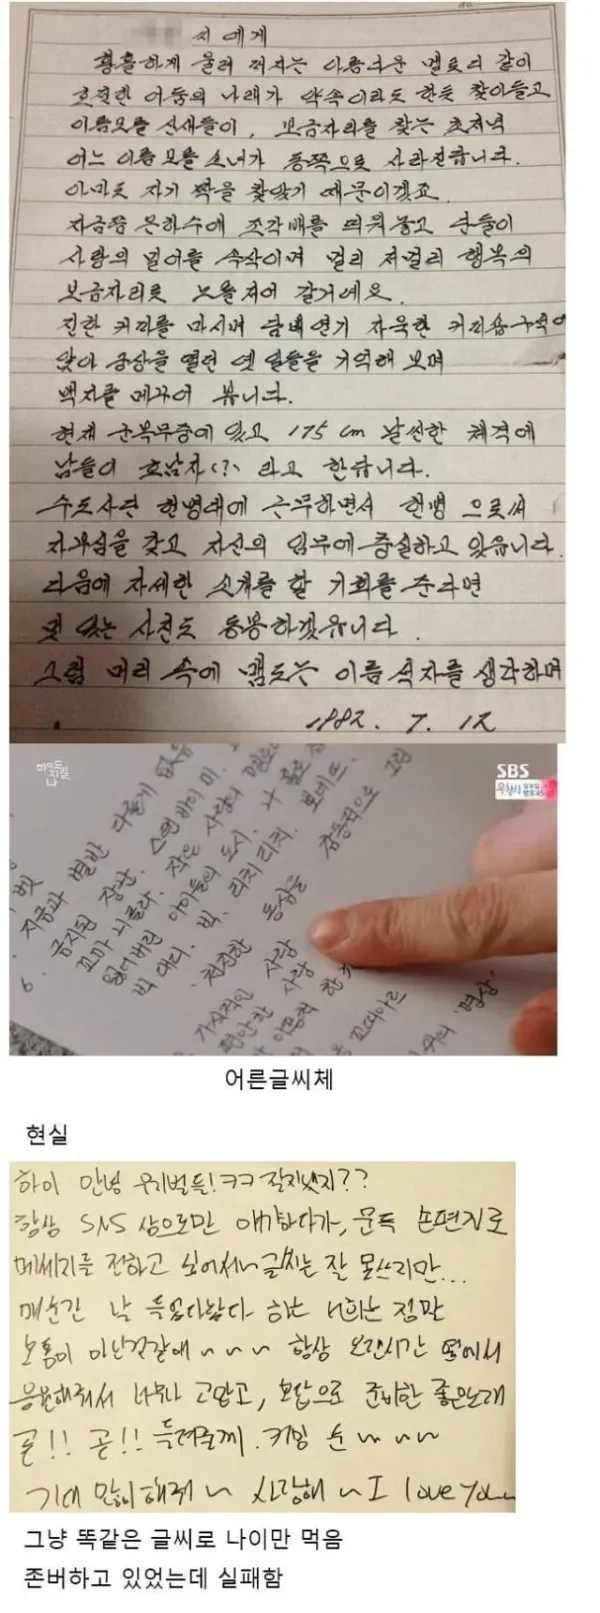 씨에게
황홀하게 울려 퍼지는 아름다운 멜로디 같이
호젓한 어둠의 나래가 약속이라도 한듯 찾아들고
이름모를 산새들이, 보금자리를 찾는 초저녁
어느 이름 모를 소녀가 동쪽으로 사라진답니다.
아마도 자기 짝을 찾았기 때문이겠죠.
지금쯤 은하수에 조각배를 띄워 놓고 단둘이
사랑의 밀어를 속삭이며 멀리 저멀리 행복의
보금자리로 노를 저어 갈거예요.
진한 커피를 마시며 담배연기 자욱한 커피숍구석에
앉아 공상을 열던 옛 일들을 기억해 보며
백지를 메꾸어 봅니다.
현재 군복무중에 있고 175cm 날씬한 체격에
남들이 호남자(?) 라고 한답니다.
수도사단 헌병대에 근무하면서 헌병 으로써
자부심을 갖고 자신의 임무에 충실하고 있읍니다.
다음에 자세한 소개를 할 기회를 준다면
멋 있는 사진도 동봉하겠읍니다.
그럼 머리 속에 맴도는 이름 석자를 생각하며
1982. 7. 12
하이드 지킬, 나
SBS
지금과 별반 다를게 없음
6. 금지된 장난. 스탠 바이 미.
꼬마 니콜라. 작은 사랑의 멜로디
잃어버린 아이들의 도시. 나 홀로
빅 대디. 빅. 리치 리치. 보네뜨.
천진한 동심을 감동적으로 그림
가식적인 사람
편안한 사람
꼬띠아르
'명상'
어른글씨체
현실
하이 안녕 우리벌들! ㅋㅋ 잘지냈지??
항상 SNS 상으로만 얘기하다가, 문득 손편지로
메세지를 전하고 싶어서~ 글씨는 잘 못쓰지만...
매순간 날 들었다놨다 하는 너희는 정말
보통이 아닌것같애 ~ ~ ~ 항상 오랜시간 옆에서
응원해줘서 너무나 고맙고, 보답으로 준비한 좋은노래
곧!! 곧!! 들려줄께. 커밍 순 ~ ~ ~
기대 많이해줘 ~ 사랑해 ~ I love you~
그냥 똑같은 글씨로 나이만 먹음
존버하고 있었는데 실패함